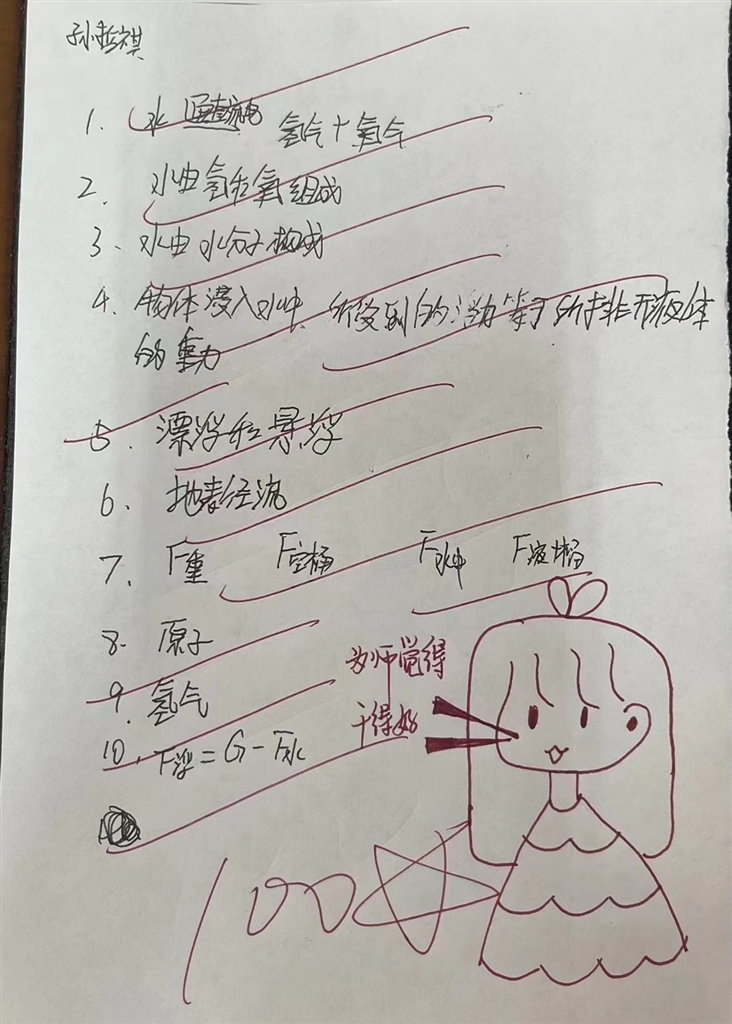 孙哲祺
1. 水 通直流电 氢气+氧气
2. 水由氢和氧组成
3、水由水分子构成
4. 物体浸入水中,所受到的浮力等于所排开液体
的重力
5. 漂浮和悬浮
6. 地表径流
7. F重 F空桶 F水中 F液桶
8. 原子
9. 氢气
10. F浮=G-F水
为师觉得
干得好
100